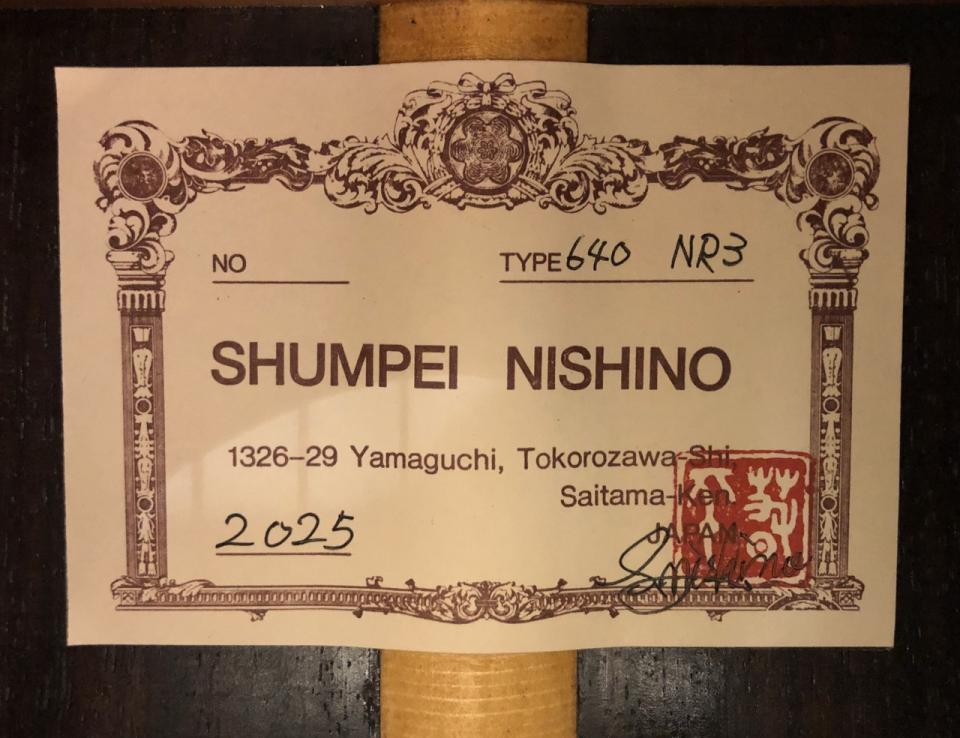 NO
TYPE 640 NR3
SHUMPEI NISHINO
1326-29 Yamaguchi, Tokorozawa-Shi,
Saitama-Ken.
2025
JAPAN
S. Nishino